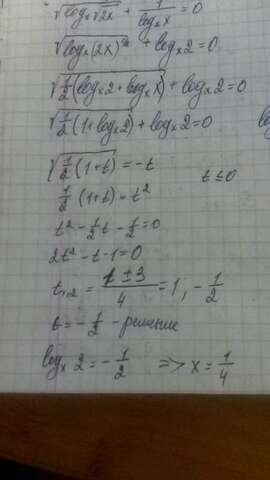 √(logₓ√2x) + 1/log₂x = 0
√(logₓ(2x)^½) + logₓ2 = 0
√(1/2(logₓ2 + logₓx)) + logₓ2 = 0
√(1/2(1+logₓ2)) + logₓ2 = 0
√(1/2(1+t)) = -t t ≤ 0
1/2(1+t) = t²
t² - 1/2t - 1/2 = 0
2t² - t - 1 = 0
t₁,₂ = (1 ± 3)/4 = 1, -1/2
t = -1/2 - решение
logₓ2 = -1/2 => x = 1/4